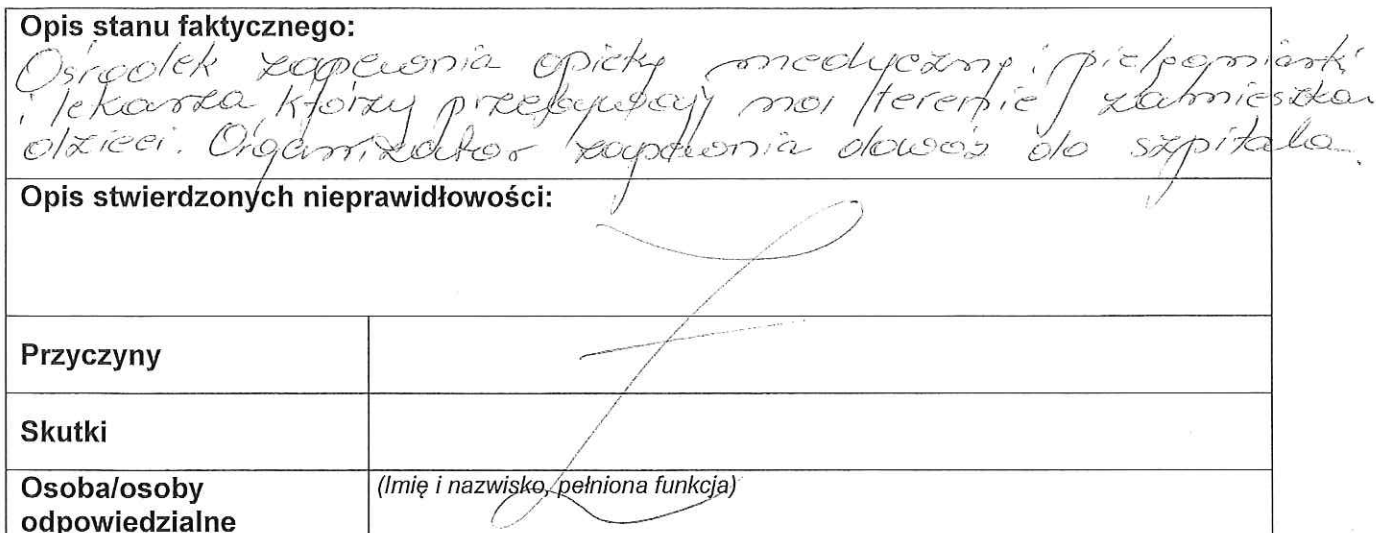 Opis stanu faktycznego:
Ośrodek zapewnia opiekę medyczną i pielęgniarki
i lekarza, którzy przebywają na terenie zamieszkan
dzieci. Organizator zapewnia dowóz do szpitala.
Opis stwierdzonych nieprawidłowości:
Przyczyny
Skutki
Osoba/osoby (Imię i nazwisko, pełniona funkcja)
odpowiedzialne